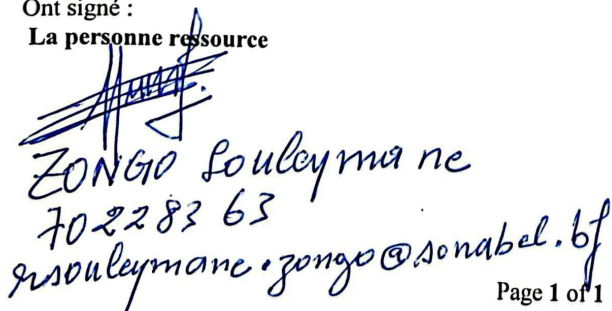 Ont signé :
La personne ressource
ZONGO Souleymane
70 22 83 63
rsouleymane.zongo@sonabel.bf
Page 1 of 1